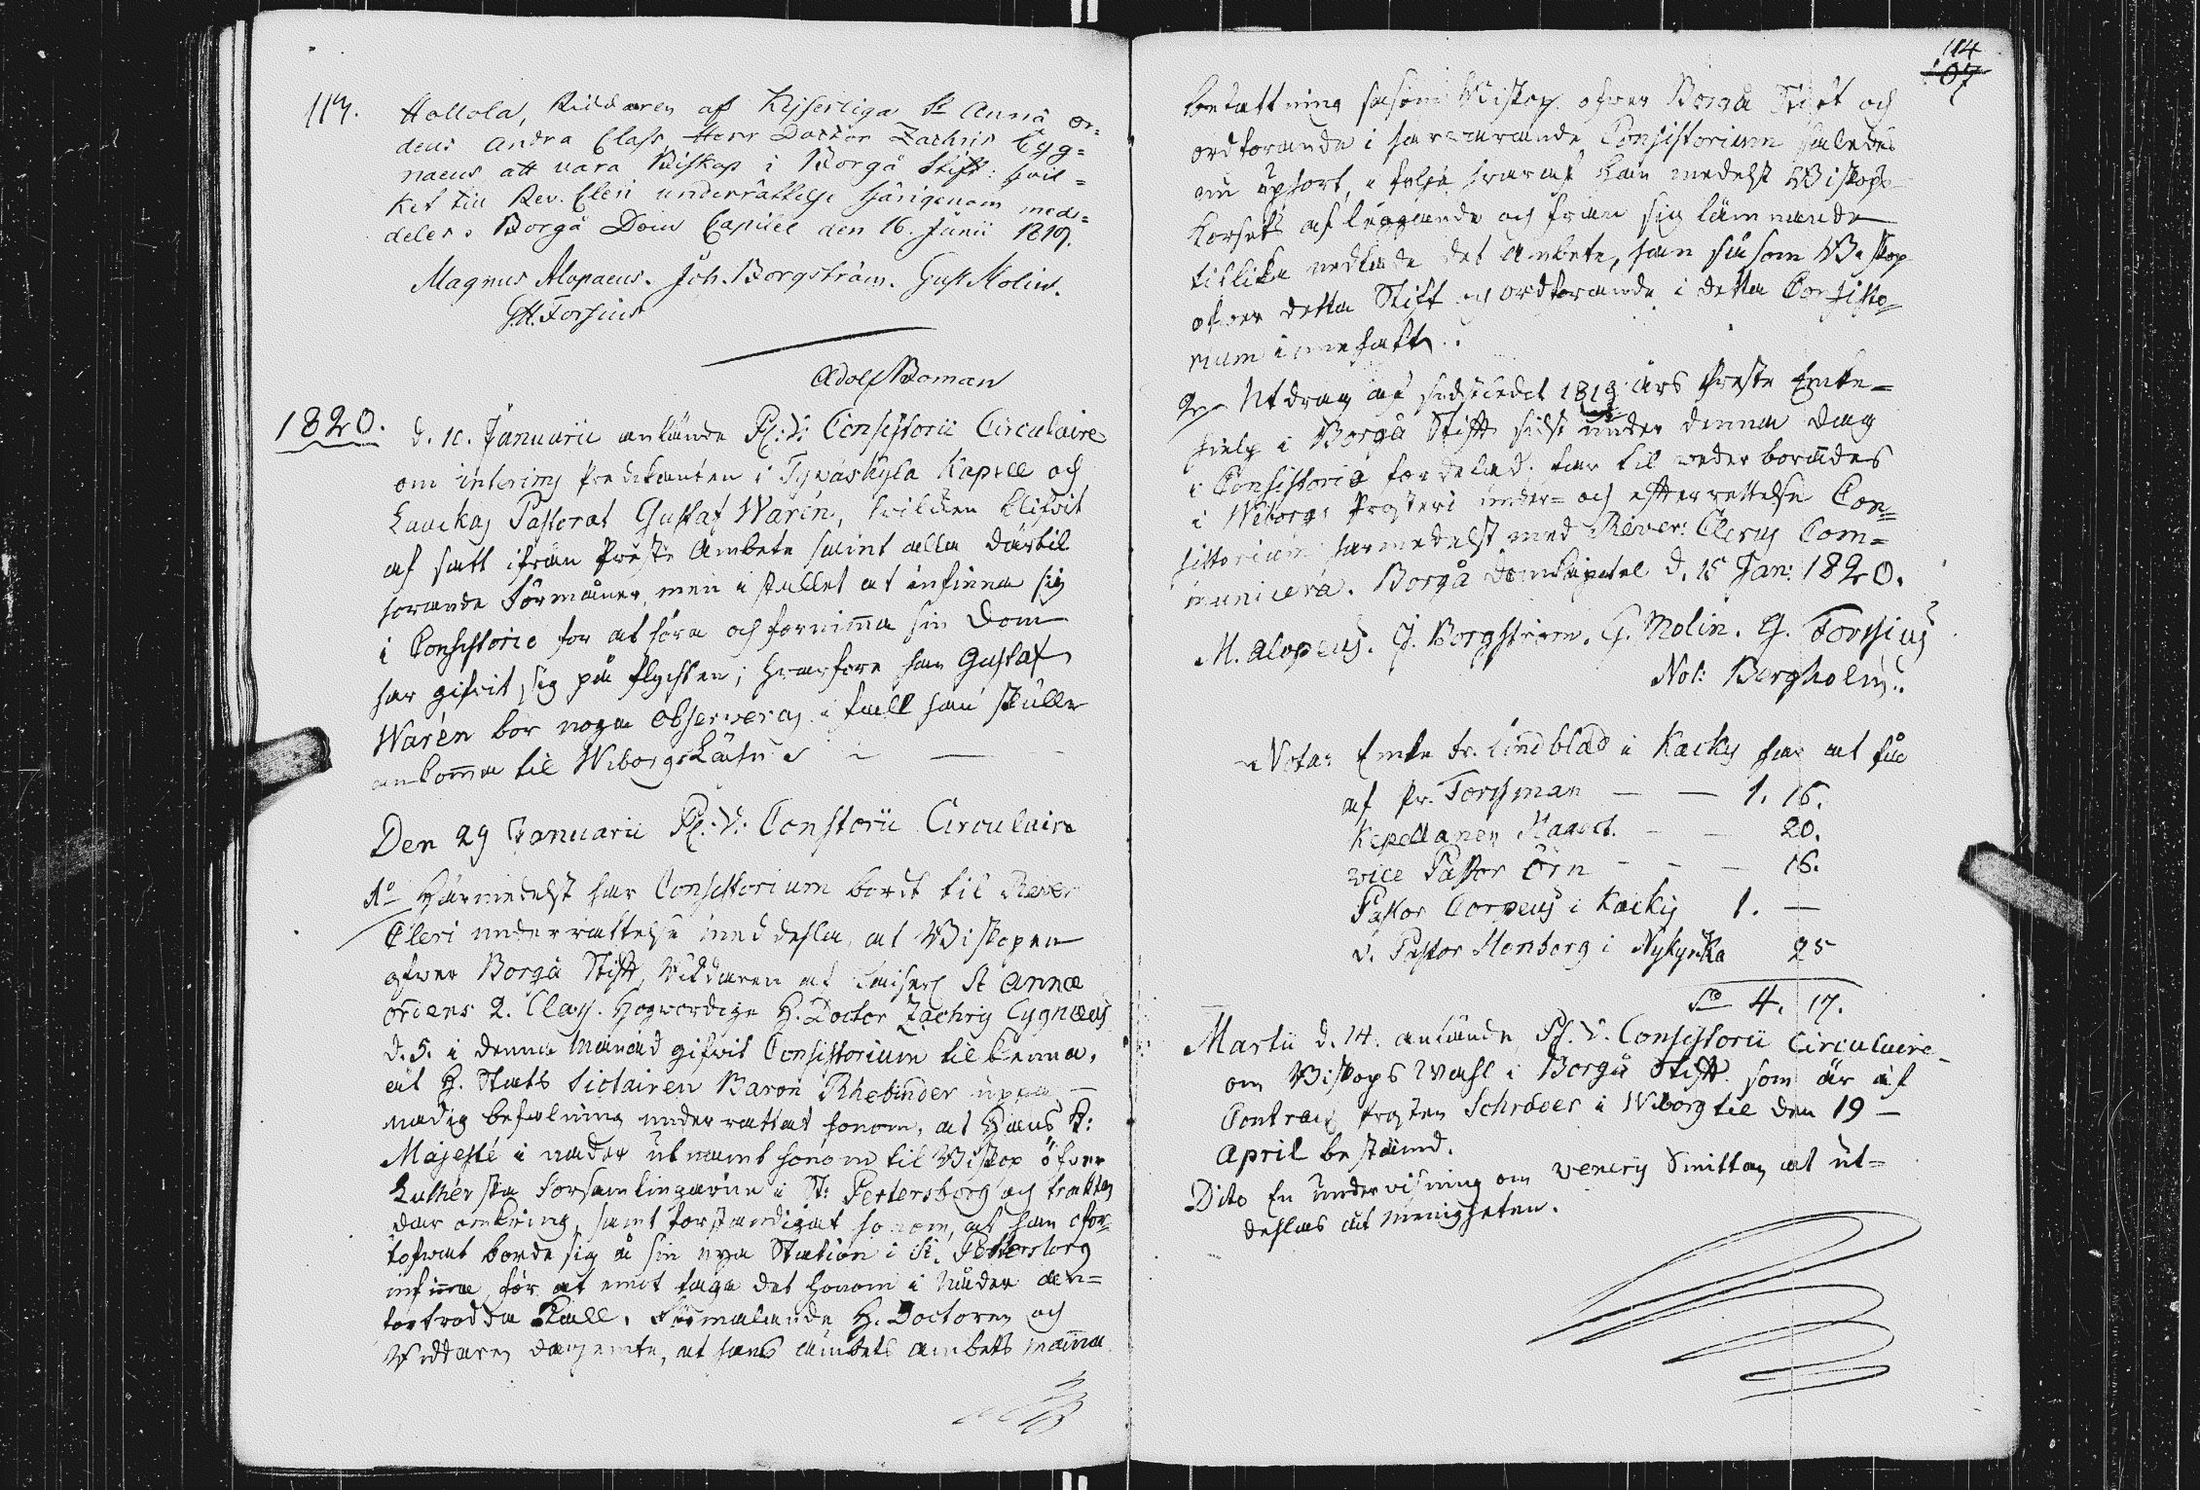 113.
Hollola, Riddaren af Kejserliga St Annå or=
dens andra Class, Herr Doctor Zachris Cyg=
naeus att vara Biskop i Borgå Stift: hvil=
ket till Rev. Cleri underrättelse härigenom med=
deles. Borgå Dom Capitel den 16. Junii 1819.
Magnus Alopaeus. Joh. Borgström. Gust Molin.
G.H. Forsius
Adolf Boman
1820. d. 10. Januarii anlände Pl: V: Consistorii Circulaire
om interims predikanten i Jywäskylä Kapell och
Lauckas Pastorat Gustaf Warén, hvilken blifvit
af satt ifrån Preste Ambete samt alla därtil
horande Förmåner, men i stället at infinna sig
i Consistorio for at höra och fornim̅a sin Dom
har gifvit sig på flyckten; hvarfore han Gustaf
Warén bor noga observeras i fall han skulle
ankom̅a til Wiborgs Län
Den 29 Januarii Pl: V: Constorii Circulaire
1o Härmedelst har Consistorium bordt til Rever
Cleri underrättelse meddela, at Biskopen
ofwer Borgå Stift, Riddaren af Keiserl St Annæ
ordens 2. Class. Hogwordige H. Doctor Zachris Cygnæus
d. 5. i denna Månad gifvit Consistorium til kenna,
at H. Stats Secretairen Baron Rhebinder uppå
nådig befalning underrattat honom, at Hans K:
Majesté i nåder utnämt honom til Biskop öfver
Lutherska Forsamlingarne i St: Petersborg och trakten
dar omkring, samt forstandigat honom, at han ofor=
tofvat borde sig å sin nya Station i St. Pettersborg
infinna för at emot taga det honom i Nåder an=
fortrodda Kall. Förmälande H. Doctoren och
Riddaren darjemte, at hans ämbets ambets man̅a
114
107
befattning såsom Biskop ofwer Borgå Stift och
ordforande i harwarande Consistorium således
nu uphort, i folje hwaraf han medelst Biskops
Korsets afläggande och från sig lämnande
tillika nedlade det Ambete, han såsom Biskop
ofver detta Stift och ordforande i detta Consisto=
rium innehaft.
2o Utdrag af sidstledet 1819 års Preste Enke=
hielp i Borgå Stift sidst under denna dag
i Consistorio fordelad, har til wederborandes
i Wiborgs Prosteri under= och efterrettelse Con=
sistorium harmedelst med Rever: Clerus Com=
municera. Borgå Domkapitel d. 15 Jan: 1820.
M. Alopeus. J. Borgström. G. Molin. G. Forssius
Not: Bergholm.
Nota: Enke fr. Lindblad i Kacky har at få
af Pr. Forssman — — 1. 16.
Kapellanen — — 20.
vice Pastor Örn — — — 16.
Pastor Corpeus i Kackis 1. —
v. Pastor Stenborg i Nykyrka 25
Sa 4. 17.
Martii d. 14. anlände Pl. V. Consistorii Circulaire
om Biskops Wahl i Borgå Stift som är af
Contracts Prosten Schröder i Wiborg til den 19 —
April bestämd.
Dito En undervisning om veneris Smittan at ut=
delas åt menigheten.